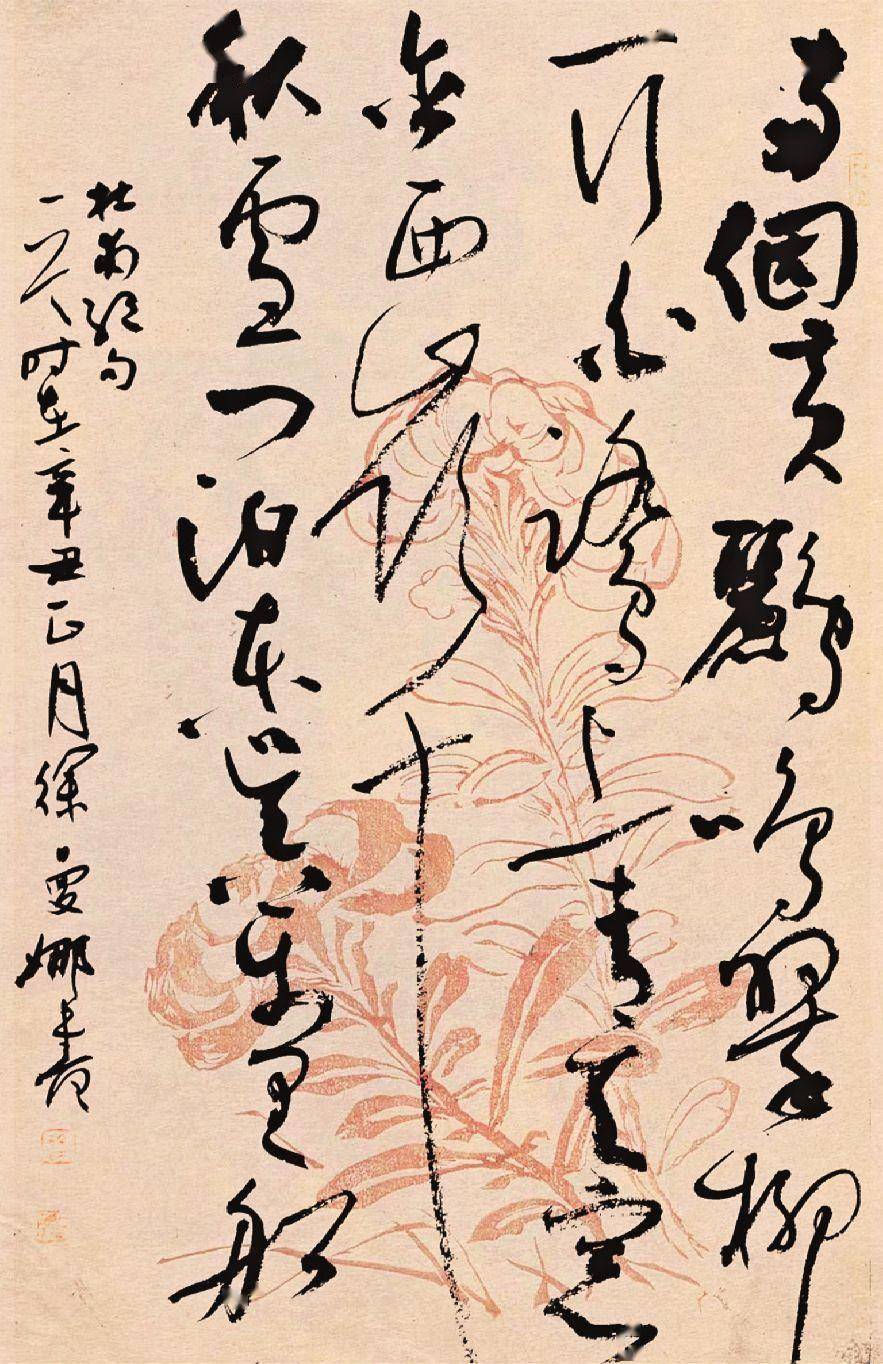 兩個黃鸝鳴翠柳
一行白鷺上青天窗
含西嶺千
秋雪門泊東吳萬里船
杜甫絕句
一首時在辛丑正月徐娜書